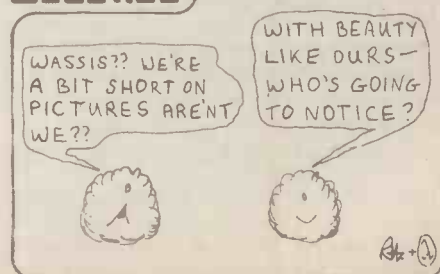 WASSIS?? WE'RE
A BIT SHORT ON
PICTURES ARE'NT
WE??
WITH BEAUTY
LIKE OURS—
WHO'S GOING
TO NOTICE?